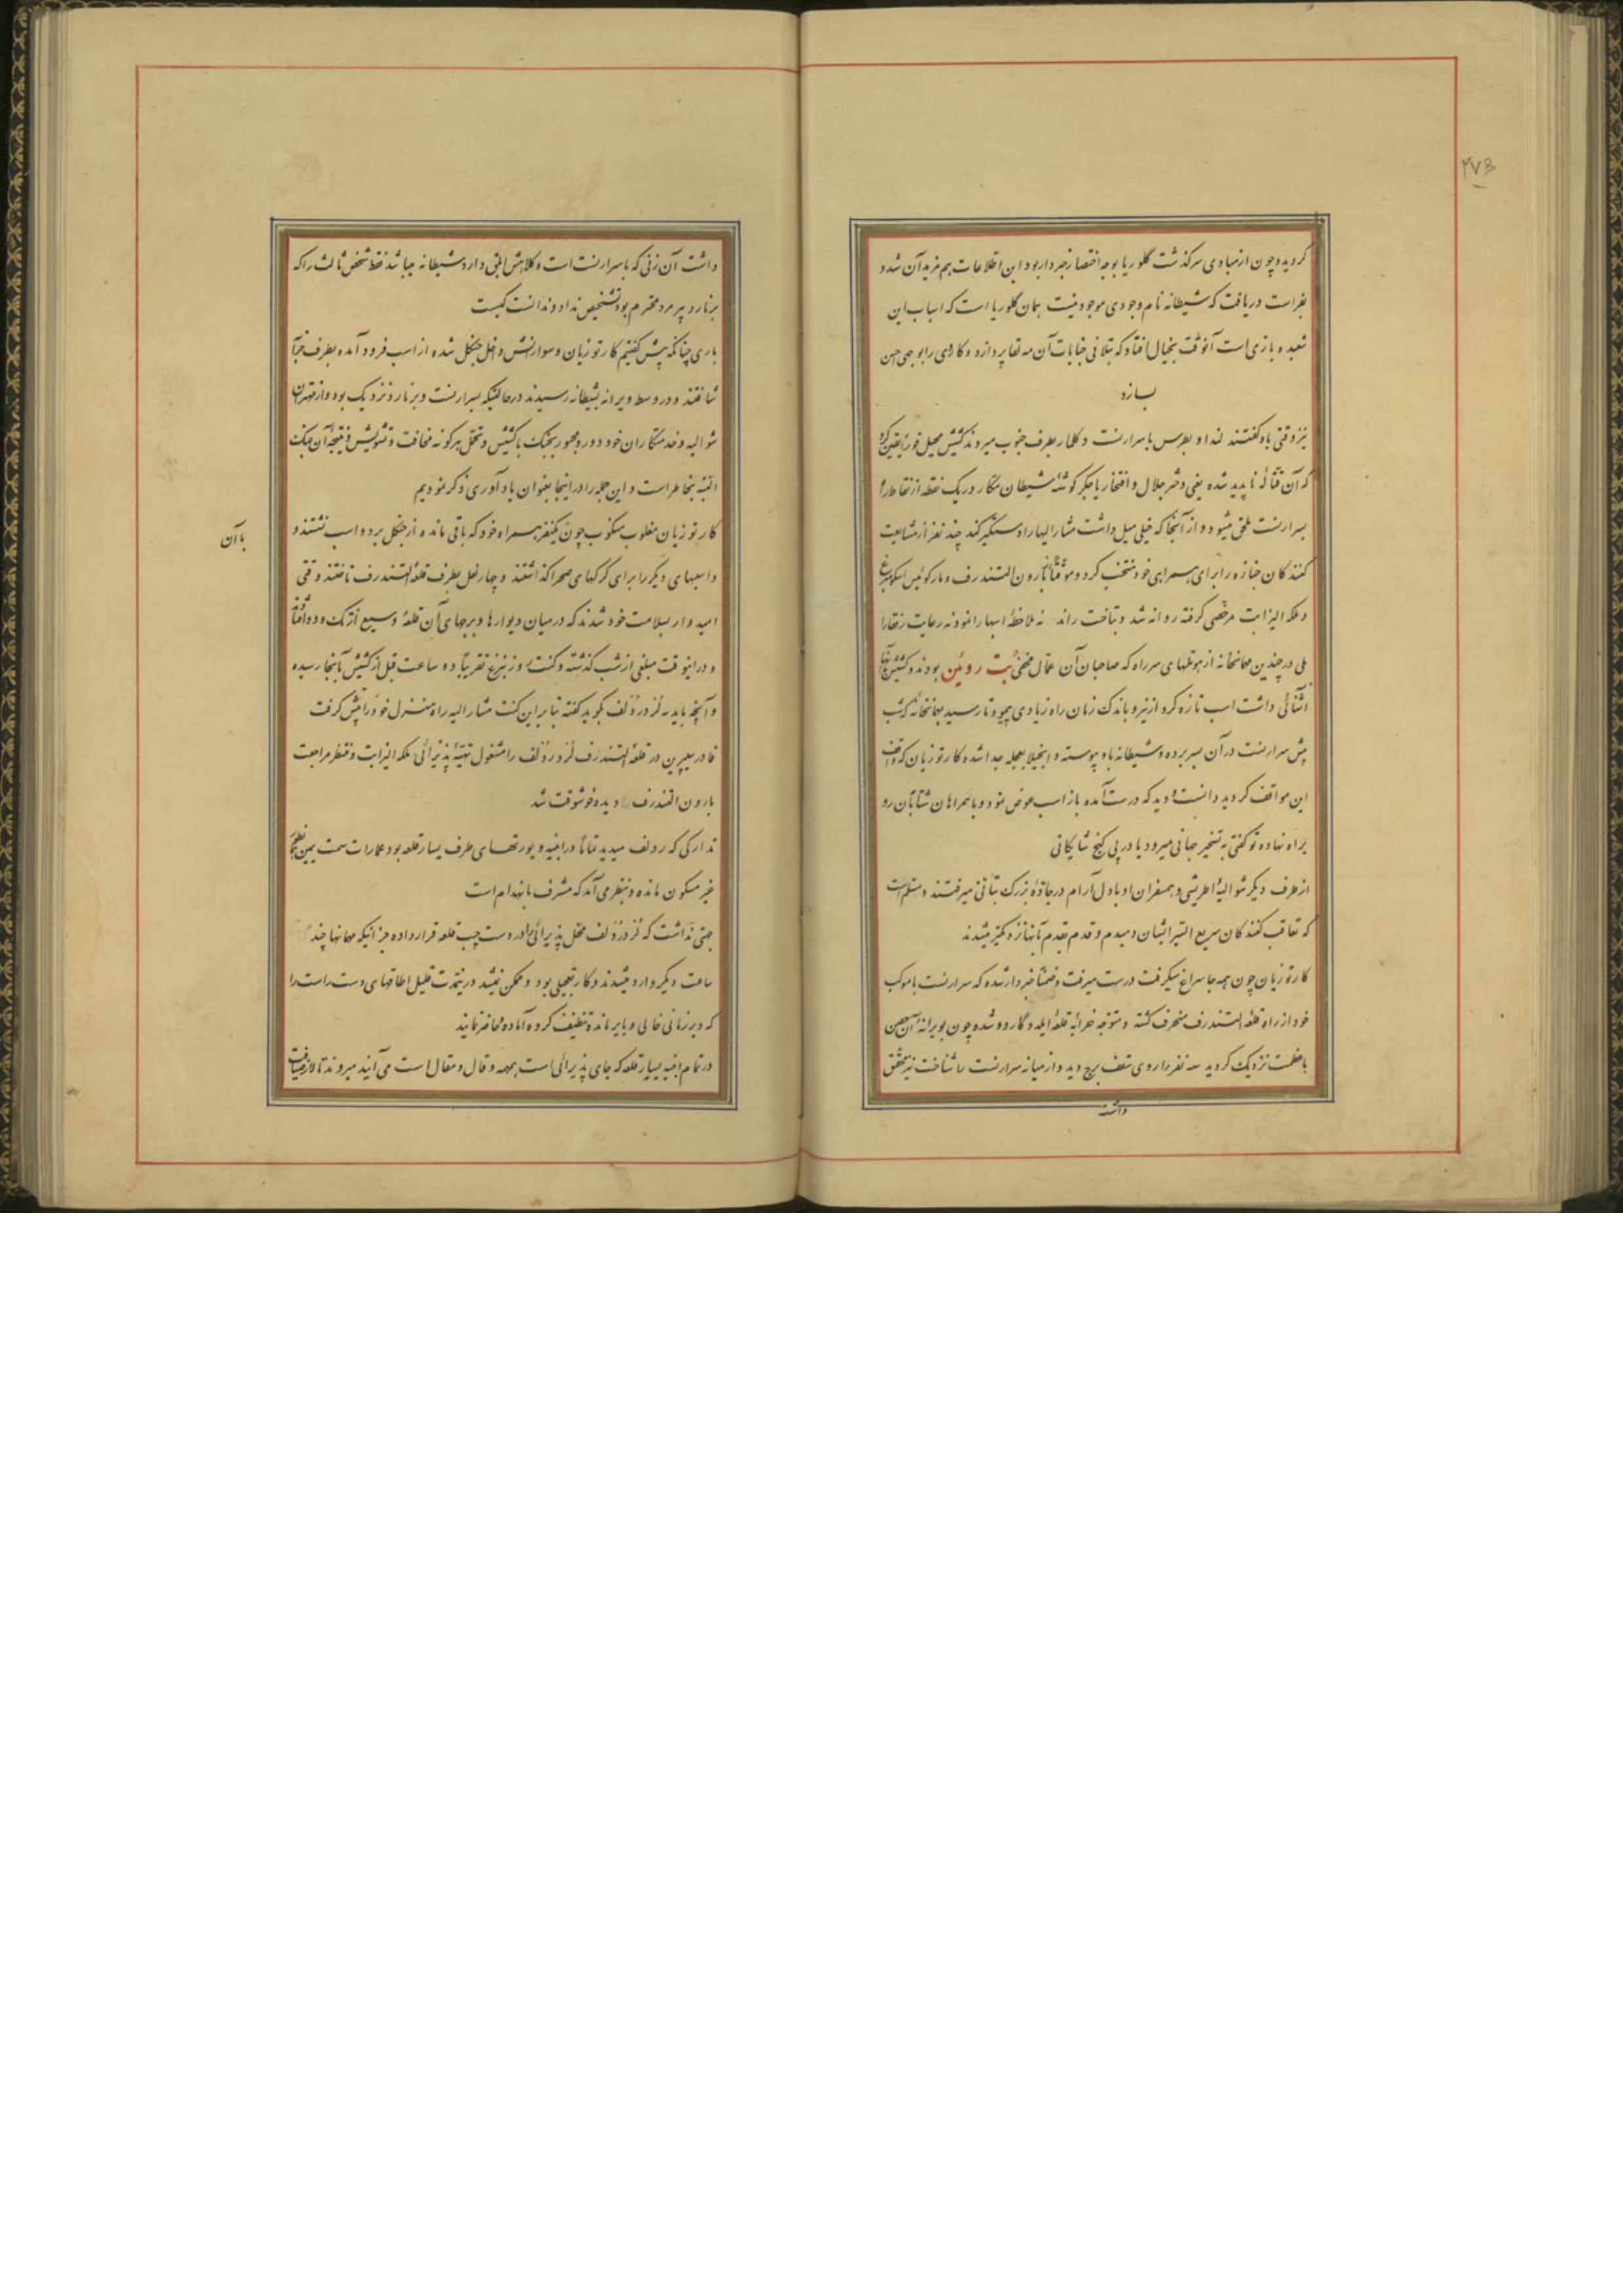 ۲۷۳
گردید و چون از مبادی سرگذشت گلوریا بوجه اختصار خبردار بود این اطلاعات هم مزید آن شد و
بفراست دریافت که شیطانه نام وجودی موجود نیست همان گلوریا است که اسباب این
شعبده بازی است آنوقت بخیال افتاد که بتلافی جنایات آن مه لقا پردازد و کار وی را بوجهی حسن
بسازد
نیز وقتی باو گفتند لندا و بطرس با سرارنست و کلمار بطرف جنوب میروند کشیش محیل فوراً یقین کرد
که آن قتاله ناپدید شده یعنی دختر جلال و افتخار یا جگر گوشه شیطان مکار در یک نقطه از نقاط راه
بسرارنست ملحق میشود و از آنجا که خیلی میل داشت مشارالیها را دستگیر کند چند نفر از مشایعت
کنندگان جنازه را برای همراهی خود منتخب کرد و موقتاً از بارون التندرف و مارکوئیس اسکمبرغ
و ملکه الیزابت مرخصی گرفته روانه شد و بتاخت راند نه ملاحظه اسبها را نمود نه رعایت رفقا را
بلی در چندین مهمانخانه از هوتلهای سر راه که صاحبان آن عمال مخفی بت روئین بودند و کشیش با آنها
آشنائی داشت اسب تازه کرد از نیرو باندک زمان راه زیادی پیمود تا رسید بمهمانخانه که شب
پیش سرارنست در آن بسر برده و شیطانه باو پیوسته و انجیلا بعجله جدا شده کارتوزیان که واقف
این مواقف گردید دانست و دید که درست آمده باز اسب عوض نمود و با همراهان شتابان رو
براه نهاده تو گفتی به تسخیر جهانی میرود یا در پی گنج شایگانی
از طرف دیگر شوالیه اطریشی و همسفران او با دل آرام در جاده بزرگ بتأنی میرفتند و مسلم است
که تعاقب کنندگان سریع السیر ایشان دمبدم و قدم بقدم بآنها نزدیکتر میشدند
کارتوزیان چون همه جا سراغ میگرفت درست میرفت و ضمناً خبردار شده که سرارنست با موکب
خود از راه قلعه التندرف منحرف گشته و متوجه خرابه قلعه ایلدگارد شده چون بویرانه آن حصن
با عظمت نزدیک گردید سه نفر را روی سقف برج دید و از میانه سرارنست را شناخت نیز محقق
داشت
داشت آن زنی که با سرارنست است و کلاهش ابلق دارد شیطانه میباشد فقط شخص ثالث را که
برنارد پیرمرد محترم بود تشخیص نداد و ندانست کیست
باری چنانکه پیش گفتیم کارتوزیان و سوارانش داخل جنگل شده از اسب فرود آمده بطرف خرابه
شتافتند و در وسط ویرانه بشیطانه رسیدند در حالتیکه سرارنست و برنارد نزدیک بود و از مهتران
شوالیه و خدمتکاران خود دور و مجبور بجنگ با کشیش و تحمل هر گونه مخافت و تشویش و نتیجه آن جنگ
البته بخاطر است و این جمله را در اینجا بعنوان یادآوری ذکر نمودیم
کارتوزیان مغلوب منکوب چون یکنفر همراه خود که باقی مانده از جنگل بر دو اسب نشستند و
با آن
و اسبهای دیگر را برای گرگهای صحرا گذاشتند و چهار نعل بطرف قلعه التندرف تاختند وقتی
امیدوار بسلامت خود شدند که در میان دیوارها و برجهای آن قلعه وسیع
و در اینوقت مبلغی از شب گذشته و کنت رزنبرغ تقریباً دو ساعت قبل از کشیش بآنجا رسیده
و آنچه باید به لُرد ردُلف بگوید گفته بنا براین کنت مشارالیه راه منزل خود را پیش گرفت
فادر سیپرین در قلعه التندرف لُرد ردُلف را مشغول تهیه پذیرائی ملکه الیزابت و منتظر مراجعت
بارون التندرف دیده خوشوقت شد
تدارکی که ردلف میدید تماماً در ابنیه و یورتهای طرف یسار قلعه بود عمارات سمت یمین
غیر مسکون مانده و بنظر می آمد که مشرف بانهدام است
جهتی نداشت که لُرد ردُلف محل پذیرائی را در دست چپ قلعه قرار داده جز اینکه مهمانها چند
ساعت دیگر وارد میشدند و کار تعجیلی بود و ممکن نمیشد در مدت قلیل اطاقهای دست راست را
که دیر زمانی خالی و بایر مانده تنظیف کرده آماده و حاضر نمایند
در تمام ابنیه یسار قلعه که جای پذیرائی است همهمه و قال و مقال است می آیند میروند تا لوازم ضیافت